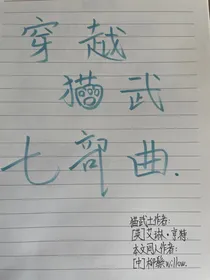 穿越
猫武
七部曲.
猫武士作者:
[英]艾琳·亨特
本文同人作者:
[中]柳Willow.